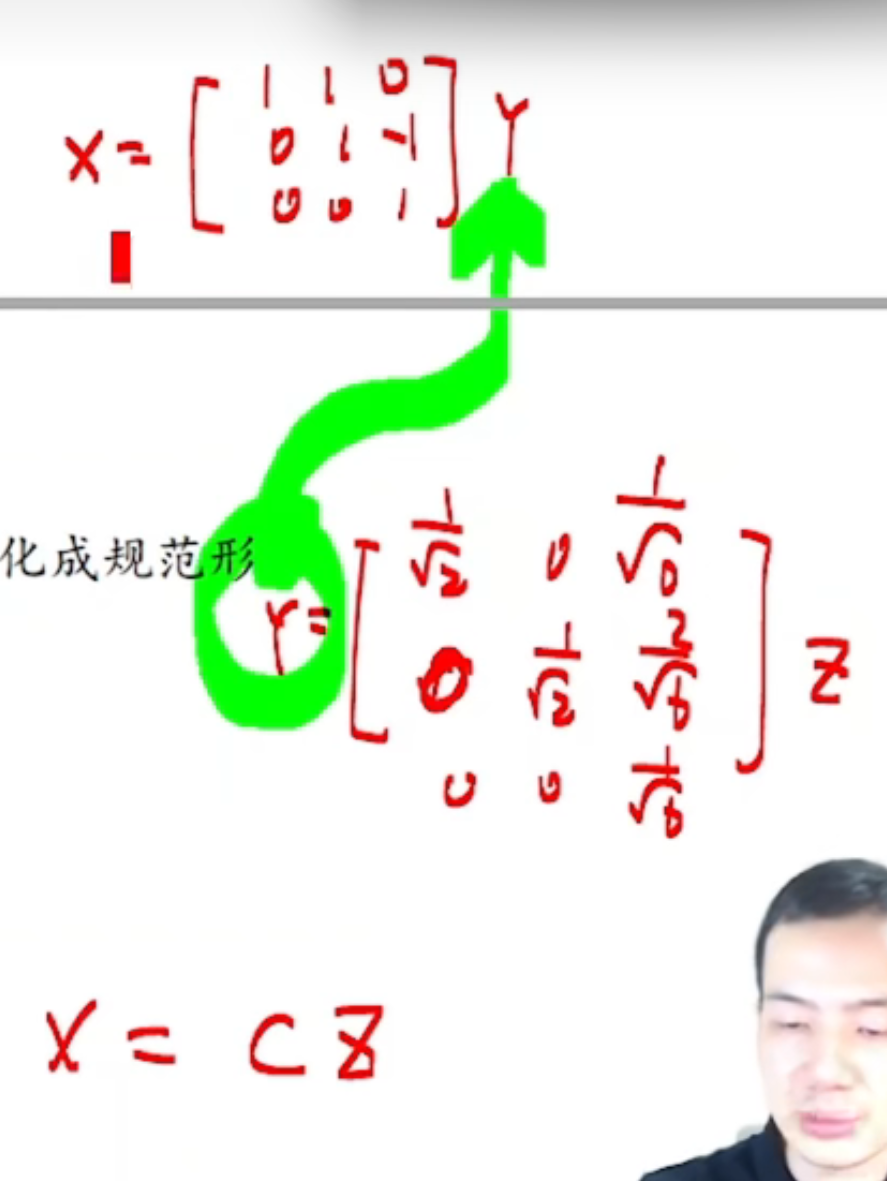 X = [ 1 1 0 ; 0 1 -1 ; 0 0 1 ] Y
化成规范形
Y = [ 1/√2 0 1/√6 ; 0 1/√2 2/√6 ; 0 0 1/√6 ] Z
X = C Z